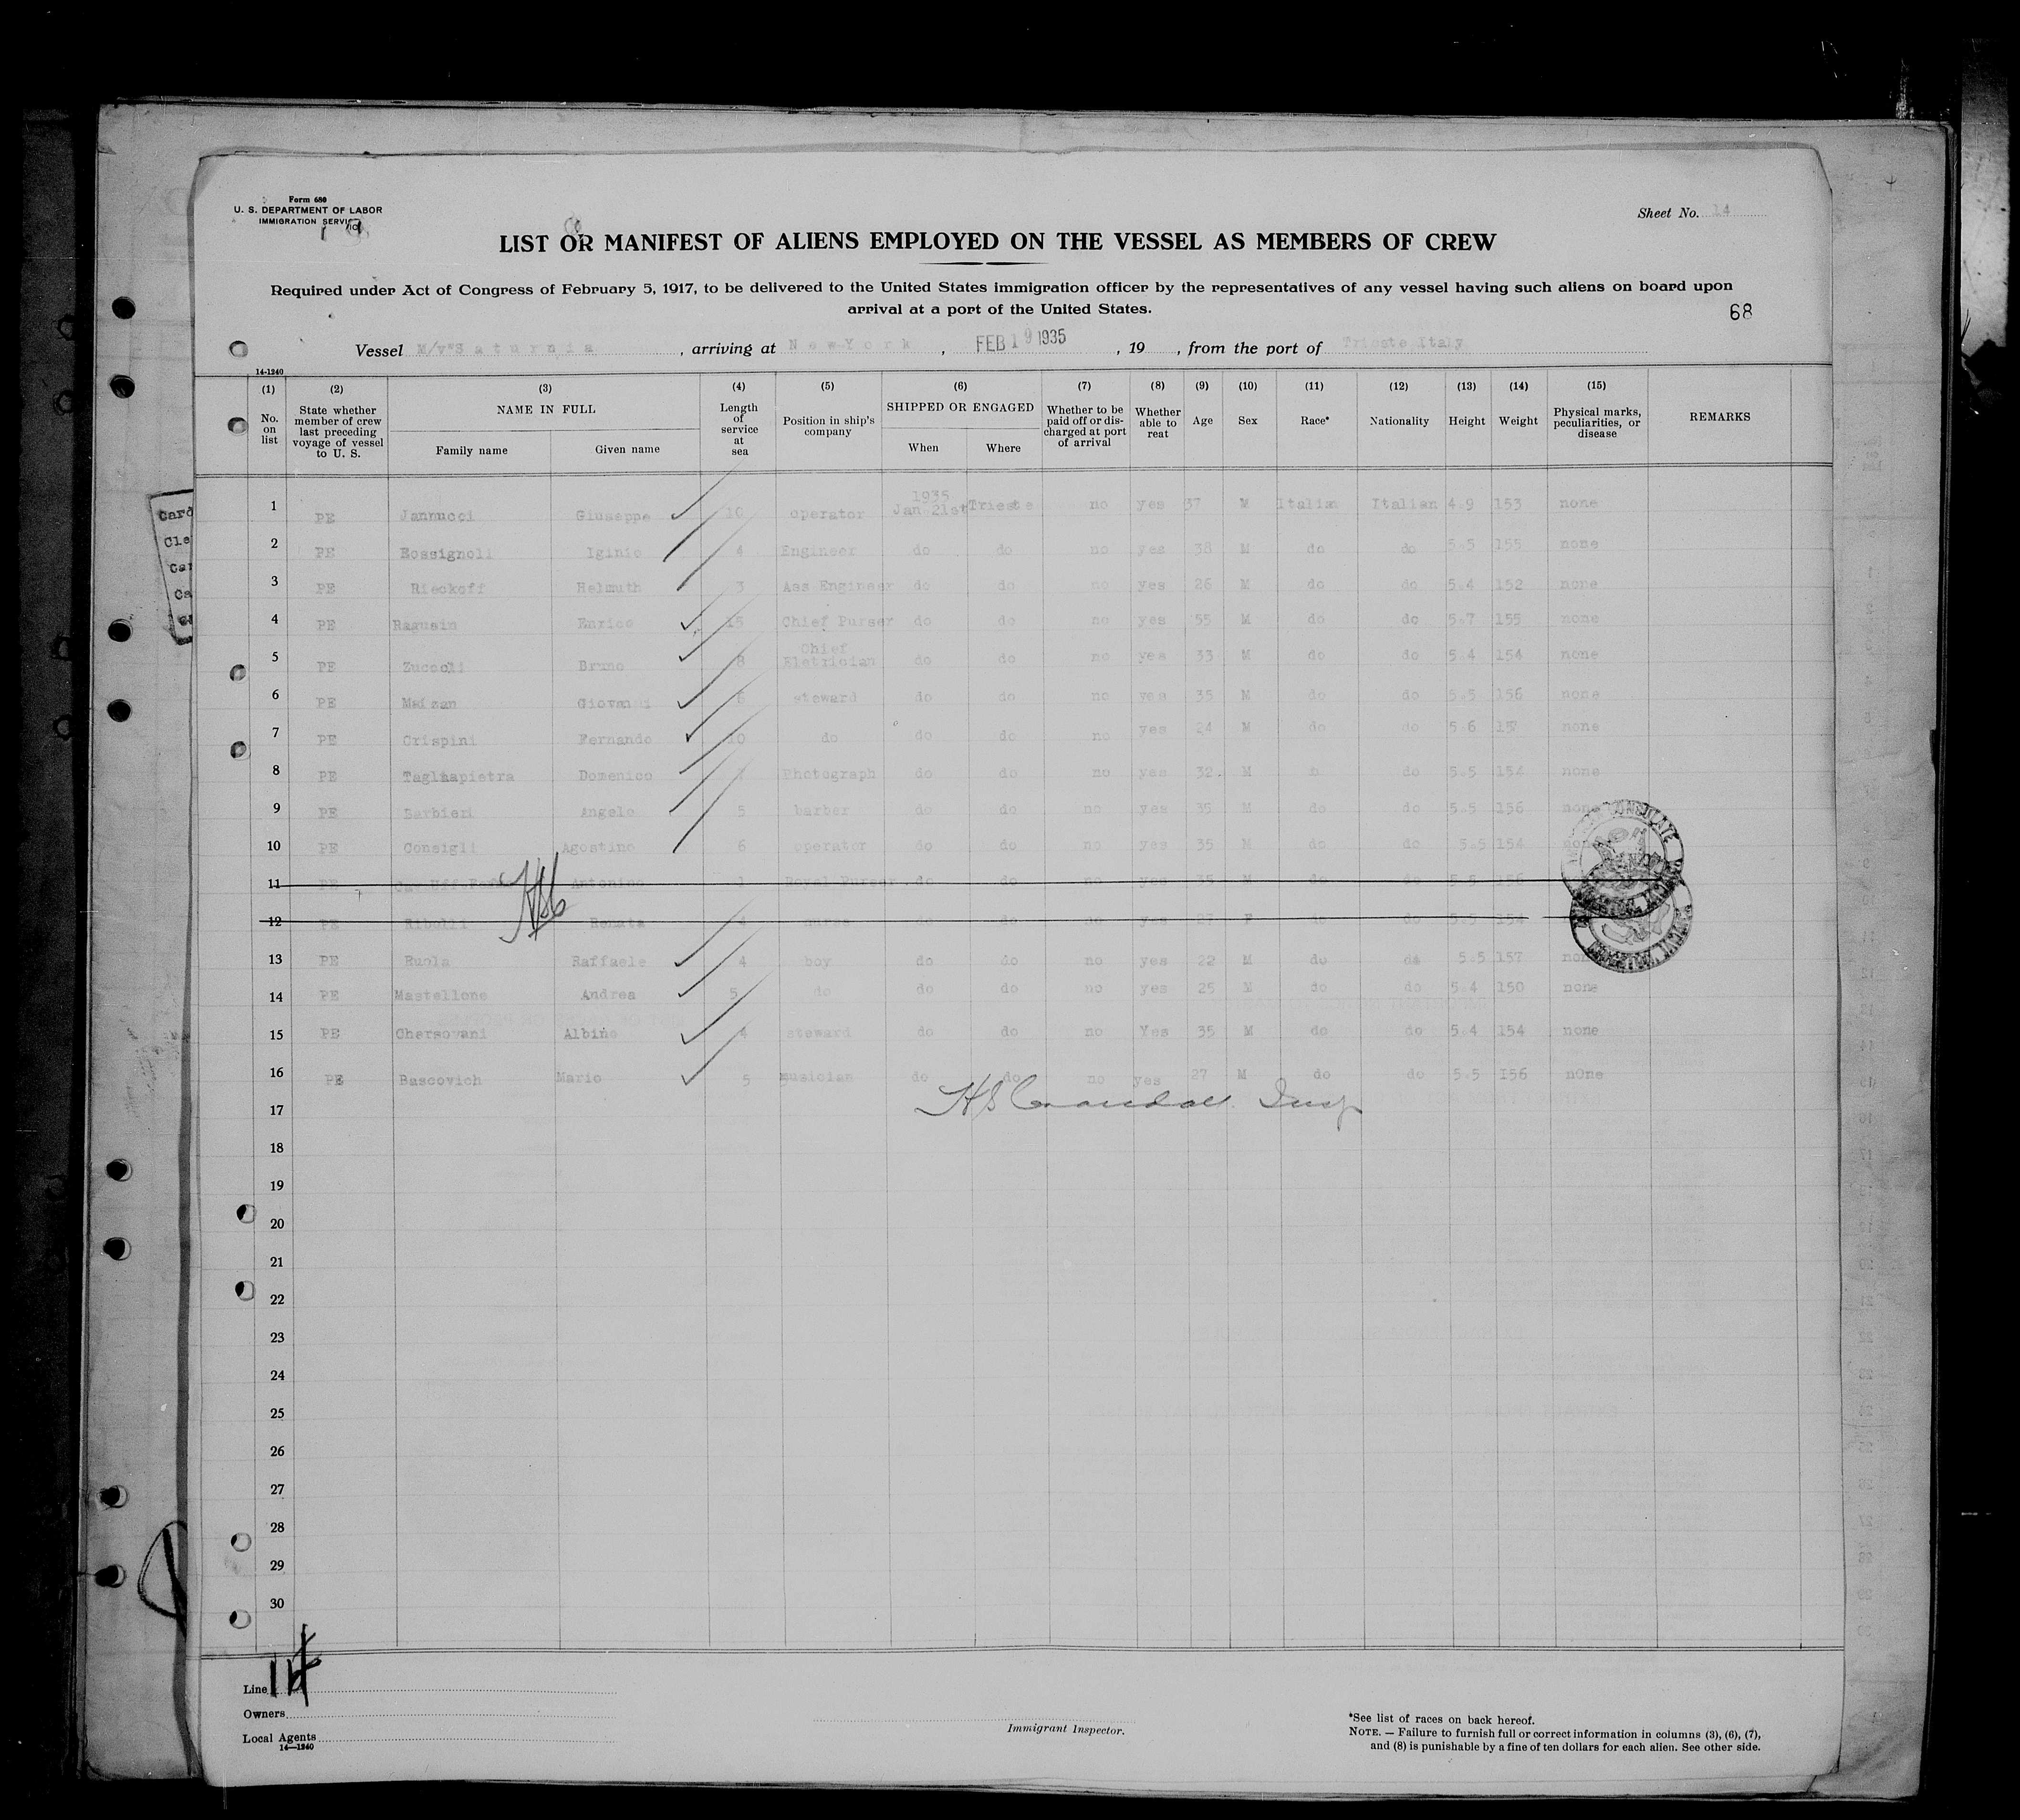 Form 680
U. S. DEPARTMENT OF LABOR
IMMIGRATION SERVICE
Sheet No. 14
LIST OR MANIFEST OF ALIENS EMPLOYED ON THE VESSEL AS MEMBERS OF CREW
Required under Act of Congress of February 5, 1917, to be delivered to the United States immigration officer by the representatives of any vessel having such aliens on board upon
arrival at a port of the United States.
68
Vessel M/v"Saturnia, arriving at New-York, FEB 19 1935, 19, from the port of Trieste Italy
14-1240
(1) (2) (3) (4) (5) (6) (7) (8) (9) (10) (11) (12) (13) (14) (15)
No. on list
State whether member of crew last preceding voyage of vessel to U. S.
NAME IN FULL
Family name Given name
Length of service at sea
Position in ship's company
SHIPPED OR ENGAGED
When Where
Whether to be paid off or discharged at port of arrival
Whether able to read
Age Sex Race* Nationality Height Weight
Physical marks, peculiarities, or disease
REMARKS
1 PE Jannucci Giuseppe 10 operator 1935 Jan 21st Trieste no yes 37 M Italian Italian 4.9 153 none
2 PE Rossignoli Iginio 4 Engineer do do no yes 38 M do do 5.5 155 none
3 PE Rieckoff Helmuth 3 Ass Engineer do do no yes 26 M do do 5.4 152 none
4 PE Ragusin Enrico 15 Chief Purser do do no yes 55 M do do 5.7 155 none
5 PE Zuccoli Bruno 8 Chief Eletrician do do no yes 33 M do do 5.4 154 none
6 PE Maizan Giovanni 6 steward do do no yes 35 M do do 5.5 156 none
7 PE Crispini Fernando 10 do do do no yes 24 M do do 5.6 none
8 PE Tagliapietra Domenico Photograph do do no yes 32. M do 5.5 154 none
9 PE Barbieri Angelo 5 barber do do no yes 35 M do do 5.5 156 none
10 PE Consigli Agostino 6 operator do do no yes 35 M do do 5.5 154 none
11 PE Antonino 1 Royal Purser do do no yes 35 M do do 5.5 156
12 PE Ribolli Renata 4 nurse do do no yes 27 F do do 5.5 154
13 PE Ruola Raffaele 4 boy do do no yes 22 M do do 5.5 157 none
14 PE Mastellone Andrea 5 do do do no yes 25 M do do 5.4 150 none
15 PE Chersovani Albino 4 steward do do no Yes 35 M do do 5.4 154 none
16 PE Bascovich Mario 5 musician do do no yes 27 M do do 5.5 156 nOne
17 H S Crandall Insp
18
19
20
21
22
23
24
25
26
27
28
29
30
Line
Owners
Local Agents
14—1240
Immigrant Inspector.
*See list of races on back hereof.
NOTE. — Failure to furnish full or correct information in columns (3), (6), (7),
and (8) is punishable by a fine of ten dollars for each alien. See other side.